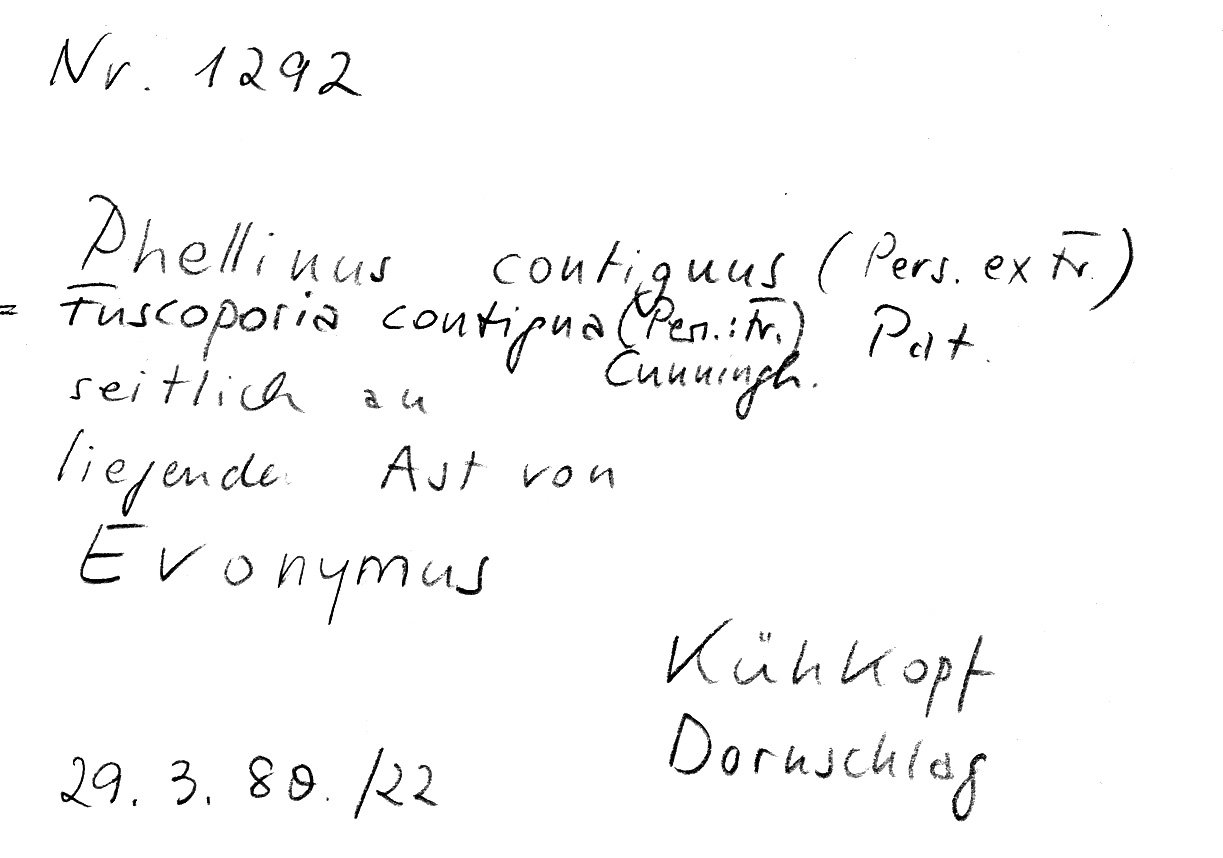 Nr. 1292
Phellinus contiguus (Pers. ex Fr.)
= Fuscoporia contigua (Pers.: Fr.) Pat.
Cunningh.
seitlich an
liegende Ast von
Evonymus
Kühkopf
Dornschlag
29. 3. 80. /22